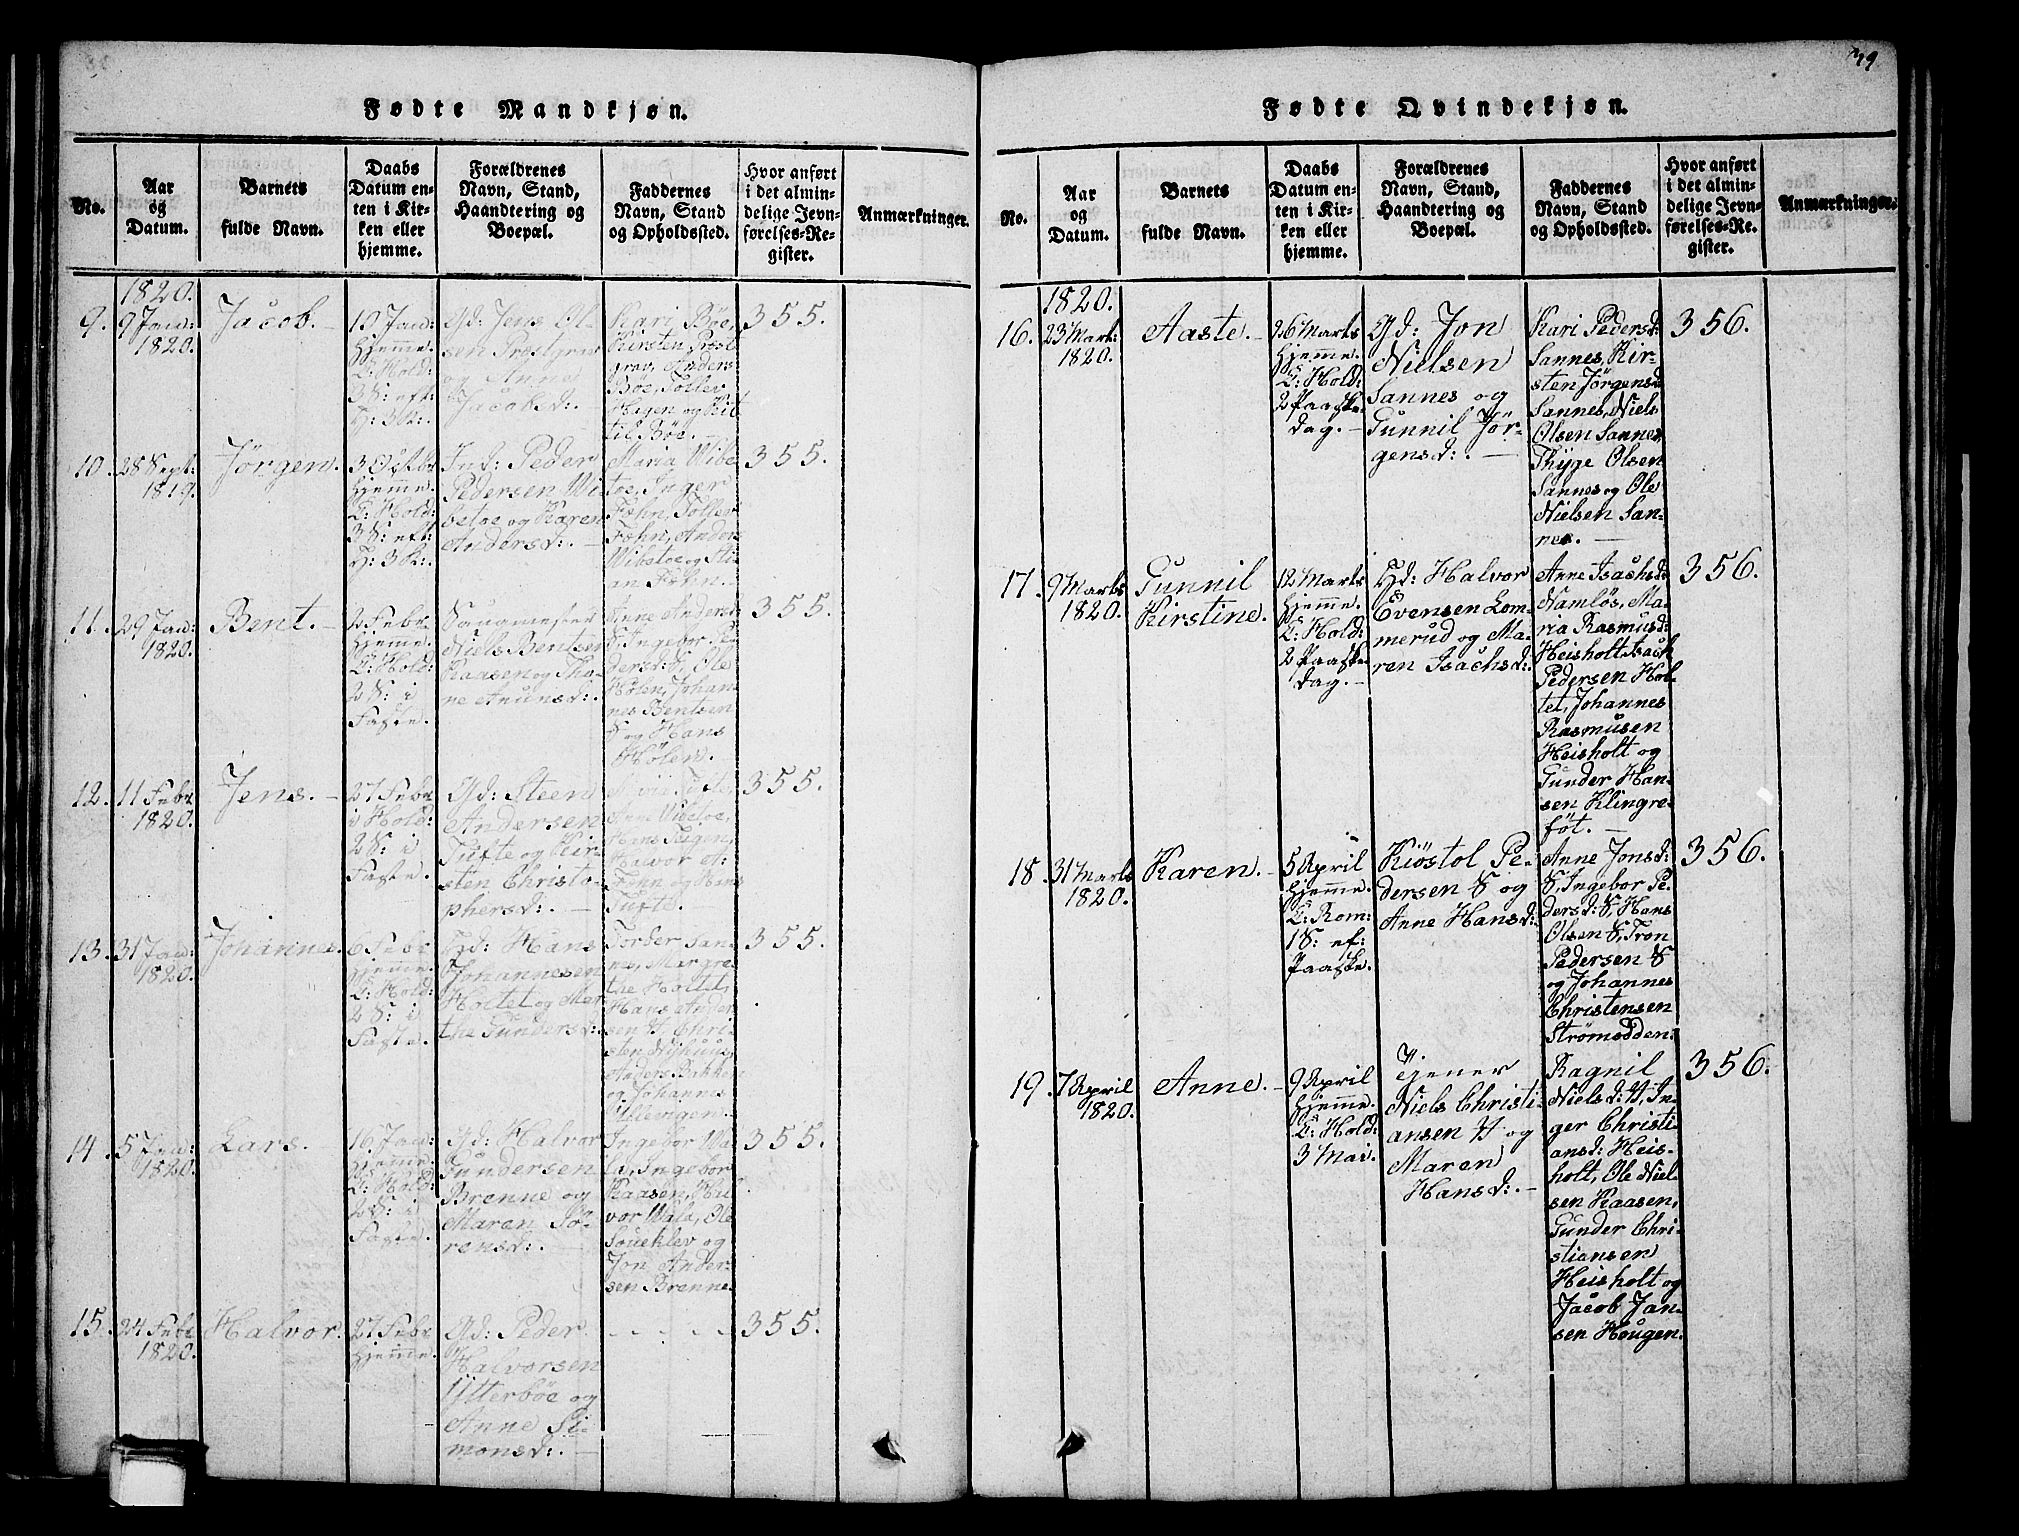 Fødte Mandkjøn.
No.
Aar
og
Datum.
Barnets
fulde Navn.
Daabs
Datum en-
ten i Kir-
ken eller
hjemme.
Forældrenes
Navn, Stand,
Haandtering og
Boepæl.
Faddernes
Navn, Stand
og Opholdssted.
Hvor anført
i det almin-
delige Jevn-
førelses-Re-
gister.
Anmærkninger.
1820.
9.
9 Jan:
1820.
Jacob.
10 Jan:
hjemme.
C: Hold:
3 S: eft:
H: 3 K:.
Gd: Jens Ol-
sen Prestgrav
og Anne
Jacobsd:.
Kari Böe,
Kirsten Prest
grav, Anders
Böe, Tollev
Hagen og Kit
til Böe.
355.
10.
28 Sept:
1819.
Jörgen.
3 Octbr
hjemme.
C: Hold:
3 S: eft:
H: 3 K:.
Ind: Peder
Pedersen Wi
betoe og Karen
Andersd:.
Maria Wibe
toe, Inger
Fehn, Tollev
Fehn, Anders
Wibetoe og
an Fehn.
355.
11.
29 Jan:
1820.
Bent.
2 Febr
hjemme.
C: Hold:
2 S: i
Faste.
Saugmester
Niels Bentsen
Kaasen og Tho-
ne Anunsd:.
Anne Andersd:
S, Ingebor Pe
dersd: S, Ole
Holen, Johan
nes Bentsen
S og Hans
Hölen.
355.
12.
11 Febr
1820.
Jens.
27 Febr
i Hold:
2 S: i
Faste.
Gd: Steen
Andersen
Tufte og Kir-
sten Christo-
phersd:.
Anne Wibetoe,
Hans Teigen,
Halvor
Fehn og Hans
Tufte.
355.
13.
31 Jan:
1820.
Johannes.
6 Febr
hjemme.
C: Hold:
2 S: i
Faste.
Hd: Hans
Johannesen
Holtet og Mar
the Gundersd:
Torder San-
nes, Margre-
the Holtet,
Hans Ander
sen H, Chri-
sten Nyhuus,
Anders Bakke
og Johannes
Ullevngen.
355.
14.
5 Jan:
1820.
Lars.
16 Jan:
hjemme.
C: Hold:
2 S: i
Faste.
Gd: Halvor
Gundersen
Brenne og
Maren Sö-
rensd:.
Ingebor Wa-
la, Ingebor
Kaasen, Hal
vor Wala, Ole
Soueklev og
Jon Ander-
sen Brenne
355.
15.
24 Febr
1820.
Halvor.
27 Febr
hjemme.
Gd: Peder
Halvorsen
Ytterböe og
Anne Si-
monsd:.
- - - - -
355.
79
Fødte Qvindekjøn.
No.
Aar
og
Datum.
Barnets
fulde Navn.
Daabs
Datum en-
ten i Kir-
ken eller
hjemme.
Forældrenes
Navn, Stand,
Haandtering og
Boepæl.
Faddernes
Navn, Stand
og Opholdssted.
Hvor anført
i det almin-
delige Jevn-
førelses-Re-
gister.
Anmærkninger.
1820.
16.
23 Marts
1820.
Aaste.
26 Marts
hjemme.
C: Hold:
2 Paaske
dag.
Gd: Jon
Nielsen
Sannes og
Gunnil Jör-
gensd:.
Kari Pedersd:
Sannes, Kir-
sten Jörgensd:
Sannes, Niels
Olsen Sannes
Thyge Olsen
Sannes og Ole
Nielsen San-
nes.
356.
17.
9 Marts
1820.
Gunnil
Kirstine.
12 Marts
hjemme.
C: Hold:
2 Paaske
dag.
Hd: Halvor
Evensen Lom-
merud og Ma-
ren Isachsd:
Anne Isachsd:
Namlös, Ma-
ria Rasmusd:
Heisholt, Isach
Pedersen Hol-
tet, Johannes
Rasmusen
Heisholt og
Gunder Han-
sen Klingre-
föt.
356.
18.
31 Marts
1820.
Karen.
5 April
hjemme.
C: Rom:
1 S: ef:
Paaske.
Kiöstol Pe-
dersen S og
Anne Hansd:
Anne Jonsd:
S, Ingebor Pe
dersd: S, Hans
Olsen S, Tron
Pedersen S
og Johannes
Christensen
Strömodden.
356.
19.
7 April
1820.
Anne.
9 April
hjemme.
C: Hold:
3 Mai.
Tjener
Niels Christi-
ansen H og
Maren
Hansd:.
Ragnil
Nielsd: H, In-
ger Christi-
ansd: Heis-
holt, Ole Niel
sen Kaasen,
Gunder Chri-
stiansen
Heisholt og
Jacob Jan-
sen Hougen.
356.